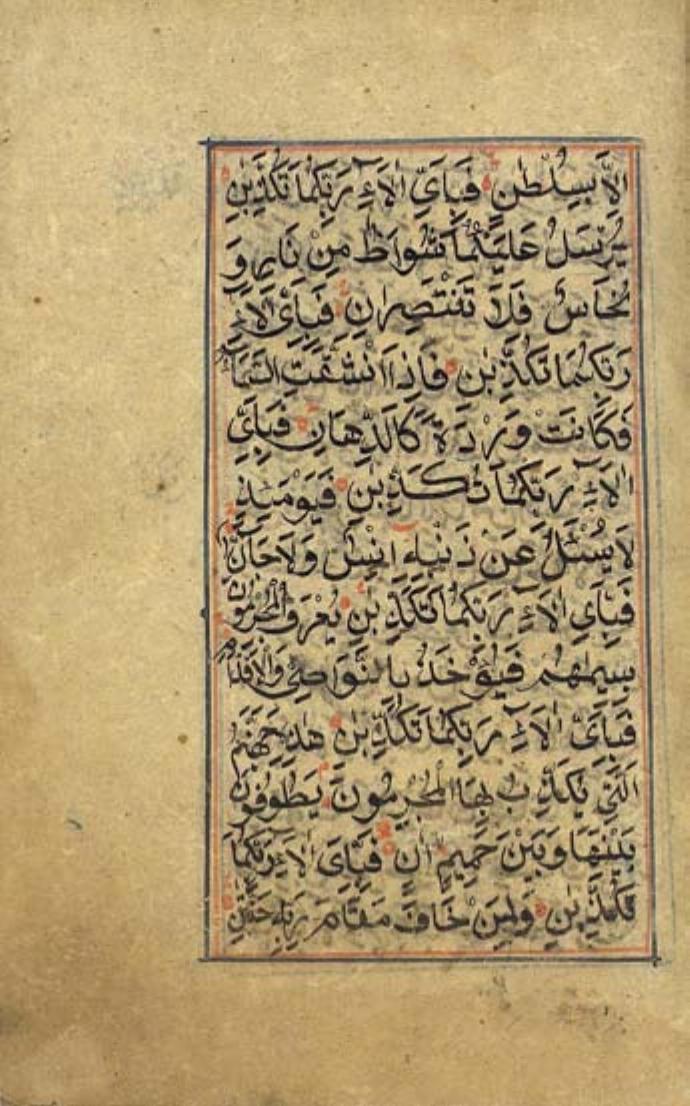 اِلَّا بِسُلْطٰنٍ فَبِاَيِّ اٰلَاۤءِ رَبِّكُمَا تُكَذِّبٰنِ
يُرْسَلُ عَلَيْكُمَا شُوَاظٌ مِنْ نَارٍ وَ
نُحَاسٌ فَلَا تَنْتَصِرَانِ فَبِاَيِّ اٰلَاۤءِ
رَبِّكُمَا تُكَذِّبٰنِ فَاِذَا انْشَقَّتِ السَّمَاۤءُ
فَكَانَتْ وَرْدَةً كَالدِّهَانِ فَبِاَيِّ
اٰلَاۤءِ رَبِّكُمَا تُكَذِّبٰنِ فَيَوْمَئِذٍ
لَا يُسْئَلُ عَنْ ذَنْبِهٖۤ اِنْسٌ وَلَا جَاۤنٌّ
فَبِاَيِّ اٰلَاۤءِ رَبِّكُمَا تُكَذِّبٰنِ يُعْرَفُ الْمُجْرِمُوْنَ
بِسِيْمٰهُمْ فَيُؤْخَذُ بِالنَّوَاصِيْ وَالْاَقْدَامِ
فَبِاَيِّ اٰلَاۤءِ رَبِّكُمَا تُكَذِّبٰنِ هٰذِهٖ جَهَنَّمُ
الَّتِيْ يُكَذِّبُ بِهَا الْمُجْرِمُوْنَ يَطُوْفُوْنَ
بَيْنَهَا وَبَيْنَ حَمِيْمٍ اٰنٍ فَبِاَيِّ اٰلَاۤءِ رَبِّكُمَا
تُكَذِّبٰنِ وَلِمَنْ خَافَ مَقَامَ رَبِّهٖ جَنَّتٰنِ